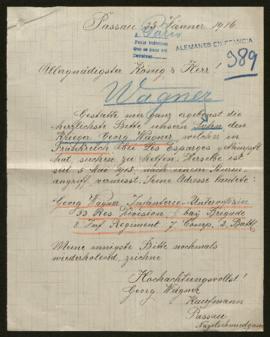 Passau 25 Jänner 1916
ALEMANES EN FRANCIA
389
Allergnädigster König & Herr!
Wagner
Gestatte mir ganz ergebenst die
herzlichste Bitte unseren Sohn den
Krieger Georg Wagner, welcher in
Frankreich bei Les Esparges gekämpft
hat, suchen zu helfen. Derselbe ist
seit 5 Mai 1915 nach einem Sturm
angriff vermisst. Seine Adresse lautete:
Georg Wagner Infanterie-Unteroffizier
33 Res Division bay Brigade
8 Inf Regiment 7 Comp, 2 Batl
Meine innigste Bitte nochmals
wiederholend, zeichne
Hochachtungsvollst!
Georg Wagner
Kaufmann
Passau